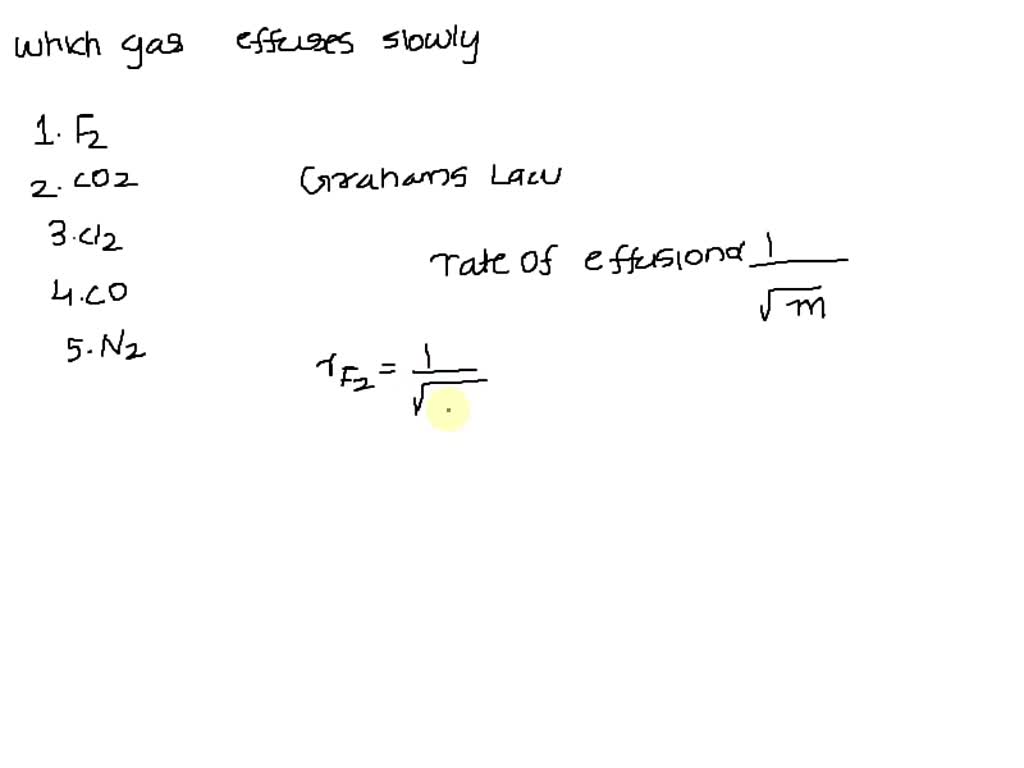 which gas effuses slowly
1. F2
2. CO2
3. Cl2
4. CO
5. N2
Grahams Law
rate of effusion α 1/√m
rF2 = 1/√